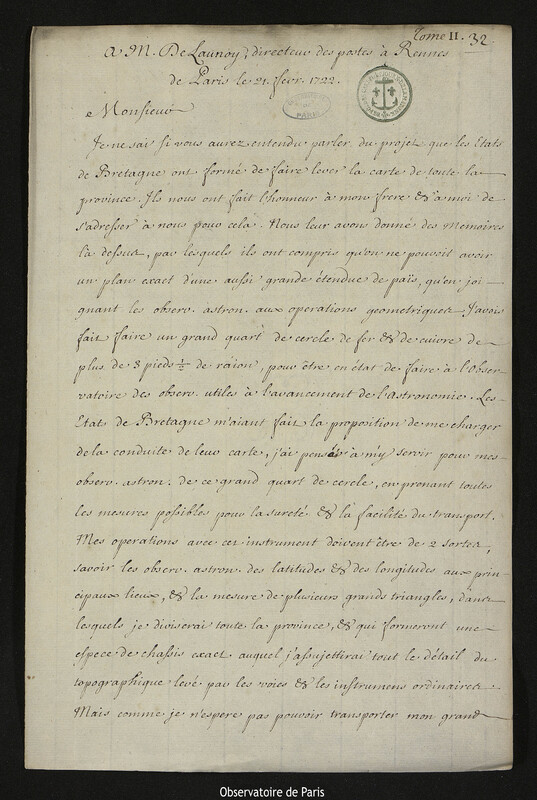 Tome II. 32
A M. De Launoy, directeur des postes à Rennes
de Paris le 21. fevr. 1722.
Monsieur
Je ne sai si vous aurez entendu parler du projet que les Etats
de Bretagne ont formé de faire lever la carte de toute la
province. Ils nous ont fait l'honneur à mon frere & à moi de
s'adresser à nous pour cela. Nous leur avons donné des Memoires
là dessus, par lesquels ils ont compris qu'on ne pouvoit avoir
un plan exact d'une aussi grande étendue de païs, qu'en joi-
gnant les observ. astron. aux operations geometriques. J'avois
fait faire un grand quart de cercle de fer & de cuivre de
plus de 3 pieds ½ de raïon, pour être en état de faire à l'Obser-
vatoire des observ. utiles à l'avancement de l'Astronomie. Les
Etats de Bretagne m'aiant fait la proposition de me charger
de la conduite de leur carte, j'ai pensé à m'y servir pour mes
observ. astron. de ce grand quart de cercle, en prenant toutes
les mesures possibles pour la sureté & la facilité du transport.
Mes operations avec cet instrument doivent être de 2 sortes,
savoir les observ. astron. des latitudes & des longitudes aux prin-
cipaux lieux, & la mesure de plusieurs grands triangles, dans
lesquels je diviserai toute la province, & qui formeront une
espece de chassis exact auquel j'assujettirai tout le détail du
topographique levé par les voies & les instrumens ordinaires.
Mais comme je n'espere pas pouvoir transporter mon grand
Observatoire de Paris